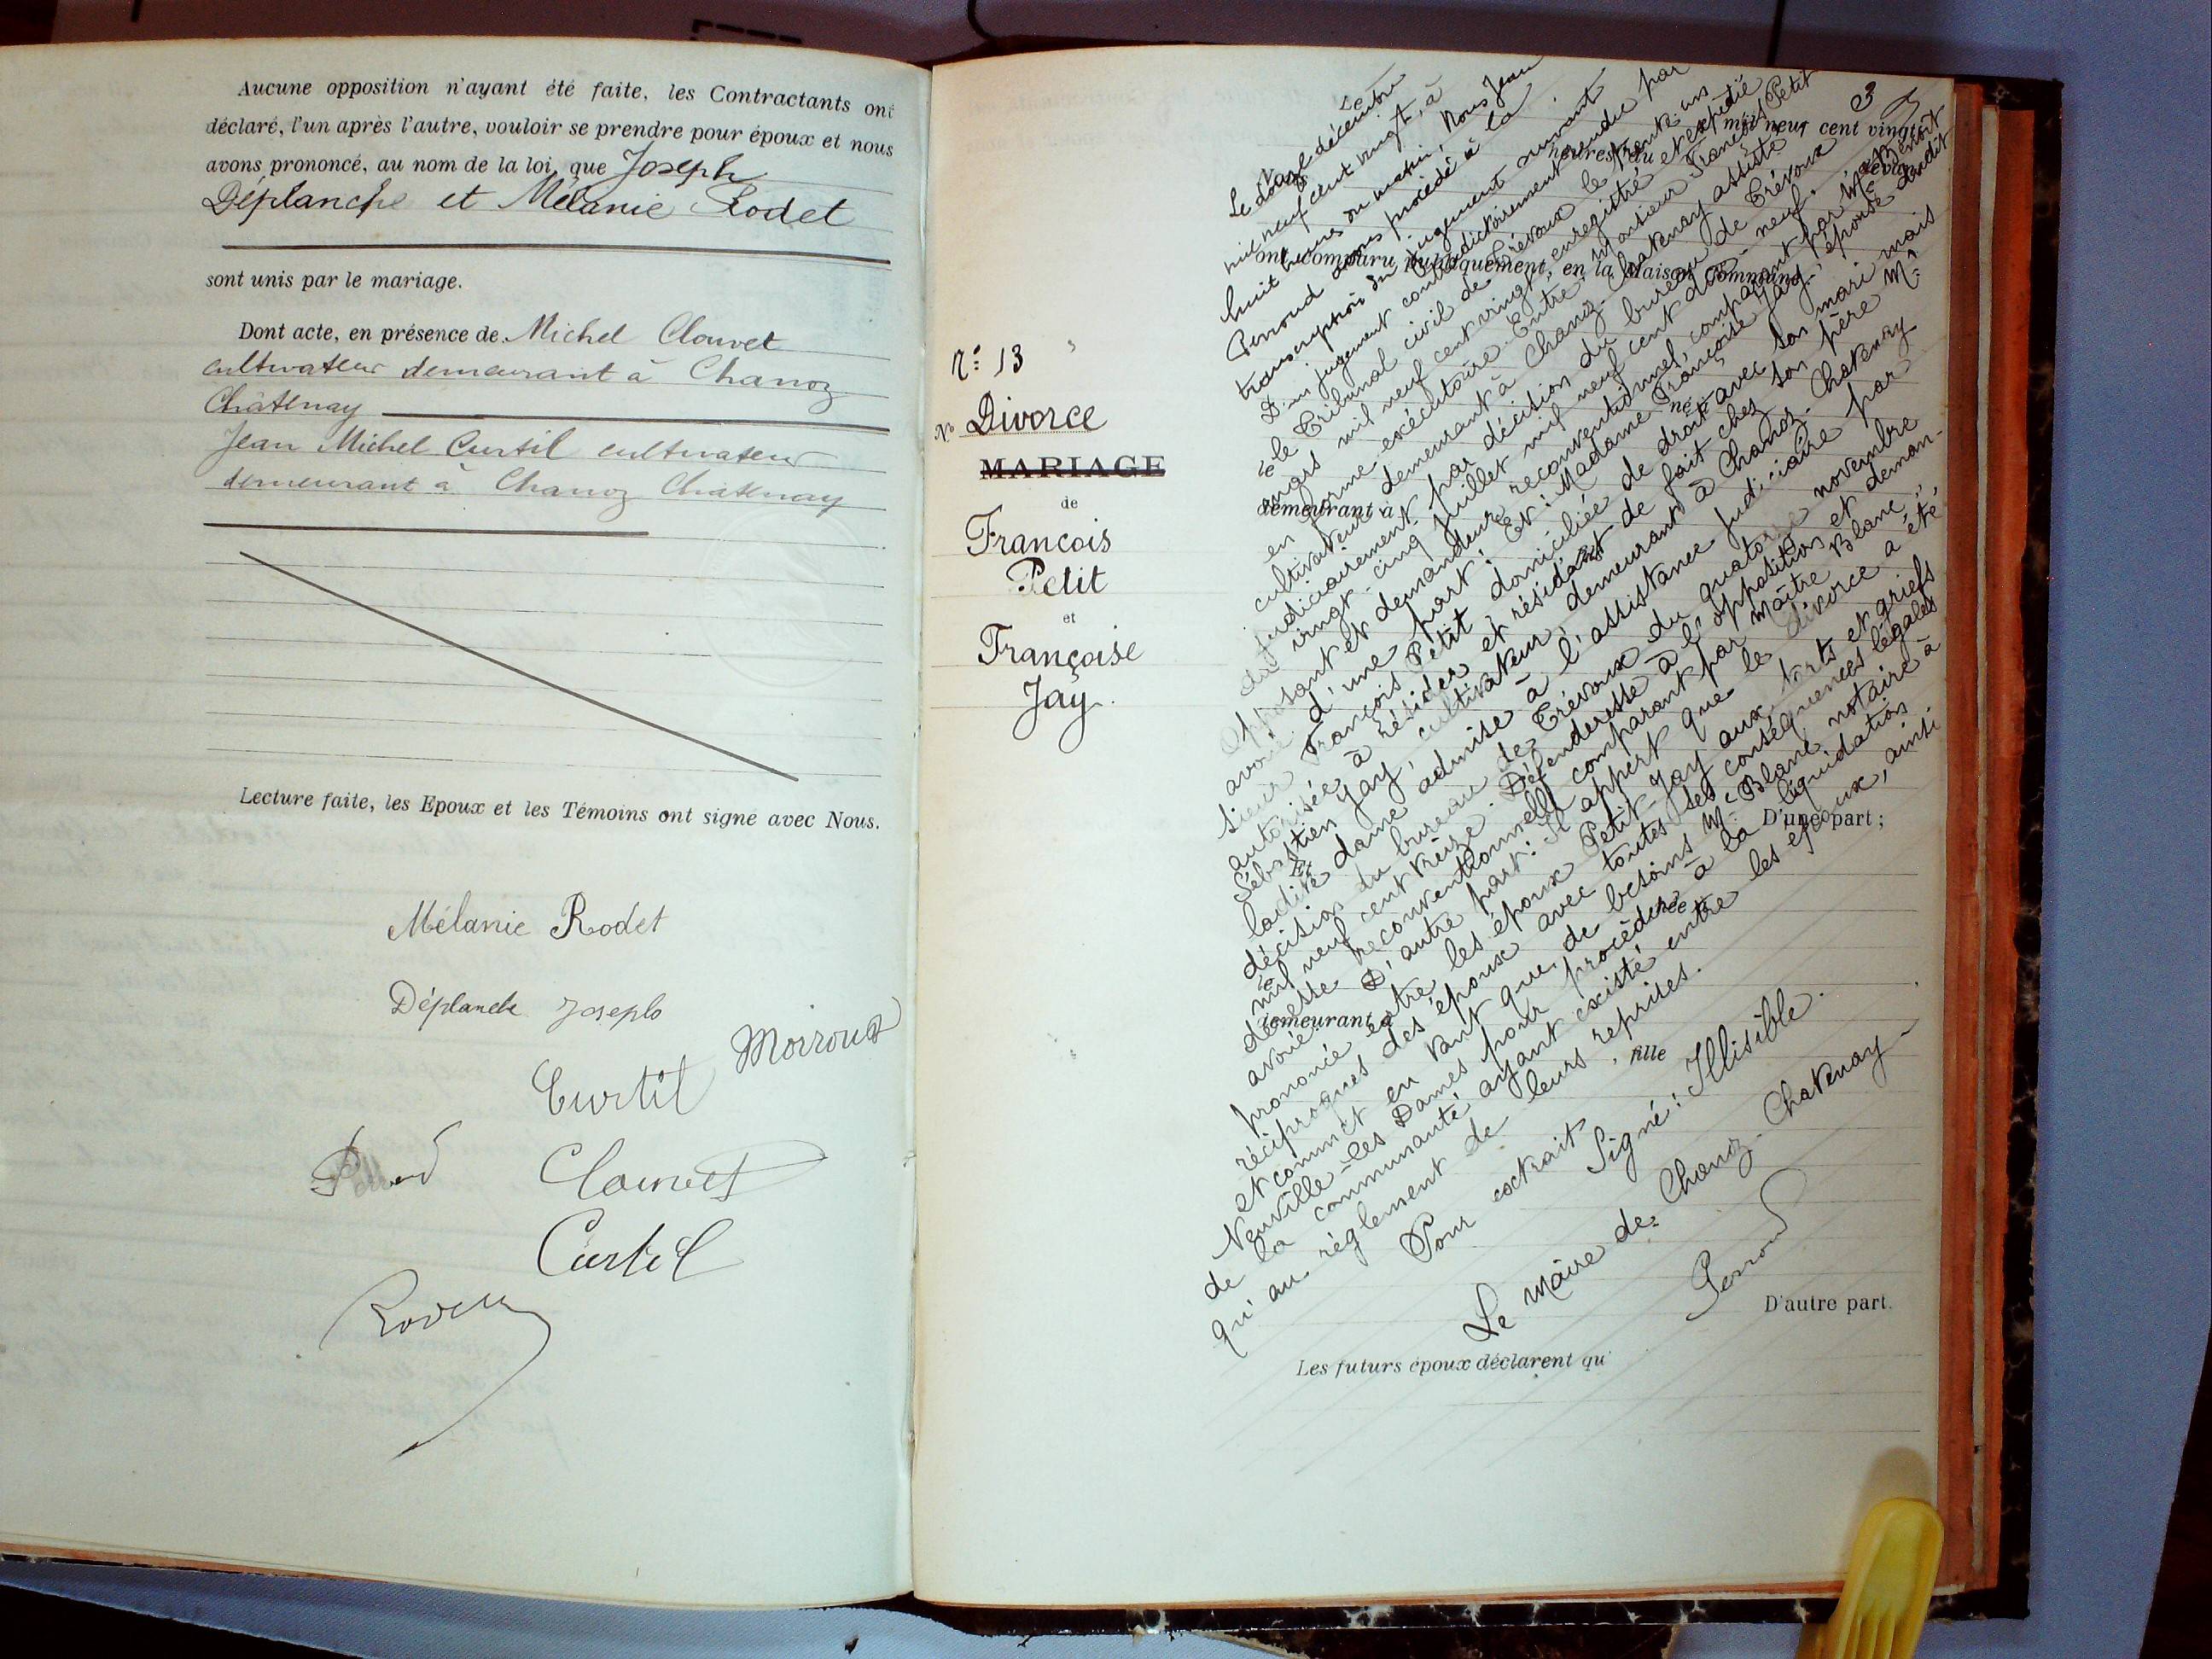 Aucune opposition n'ayant été faite, les Contractants ont
déclaré, l'un après l'autre, vouloir se prendre pour époux et nous
avons prononcé, au nom de la loi, que Joseph
Déplanche et Mélanie Rodet
sont unis par le mariage.
Dont acte, en présence de Michel Clouvet
cultivateur demeurant à Chanoz
Châtenay
Jean Michel Curtil cultivateur
demeurant à Chanoz Chatenay
Lecture faite, les Epoux et les Témoins ont signé avec Nous.
Mélanie Rodet
Déplanche Joseph
Curtil
Clouvet
Curtil
3
N° 13
N° Divorce
MARIAGE
de
François
Petit
et
Françoise
Jay
Le mil neuf cent vingt
heures du
ont comparu publiquement, en la Maison commune
né
le
demeurant à
D'une part ;
Et
née à
le
demeurant à
fille
D'autre part.
Les futurs époux déclarent qu'
Le douze décembre
mil neuf cent vingt, à
huit heures du matin, Nous Jean
Perroud avons procédé à la
transcription du jugement suivant
D'un jugement contradictoirement rendu par
le Tribunal civil de Trévoux le trente un
mars mil neuf cent vingt, enregistré et expédié
en forme exécutoire. Entre: Monsieur François Petit
cultivateur demeurant à Chanoz-Chatenay assisté
judiciairement par décision du bureau de Trévoux
du vingt-cinq juillet mil neuf cent dix-neuf,
Opposant et demandeur reconventionnel, comparant par Me
avoué d'une part; Et: Madame Françoise Jay, épouse dudit
sieur François Petit domiciliée de droit avec son mari mais
autorisée à résider et résidant de fait chez son père Mr
Sébastien Jay, cultivateur, demeurant à Chanoz-Chatenay
ladite dame admise à l'assistance judiciaire par
décision du bureau de Trévoux du quatorze novembre
mil neuf cent treize. Défenderesse à l'opposition et deman-
deresse reconventionnelle comparant par Maître Blanc,
avoué D'autre part: Il appert que le divorce a été
prononcé entre les époux Petit-Jay aux torts et griefs
réciproques des époux avec toutes ses conséquences légales
et commet en tant que de besoins Me Blanc notaire à
Neuville-les Dames pour procéder à la liquidation
de la communauté ayant existé entre les époux, ainsi
qu'au règlement de leurs reprises.
Pour extrait Signé: Illisible.
Le Maire de Chanoz-Chatenay
Perroud